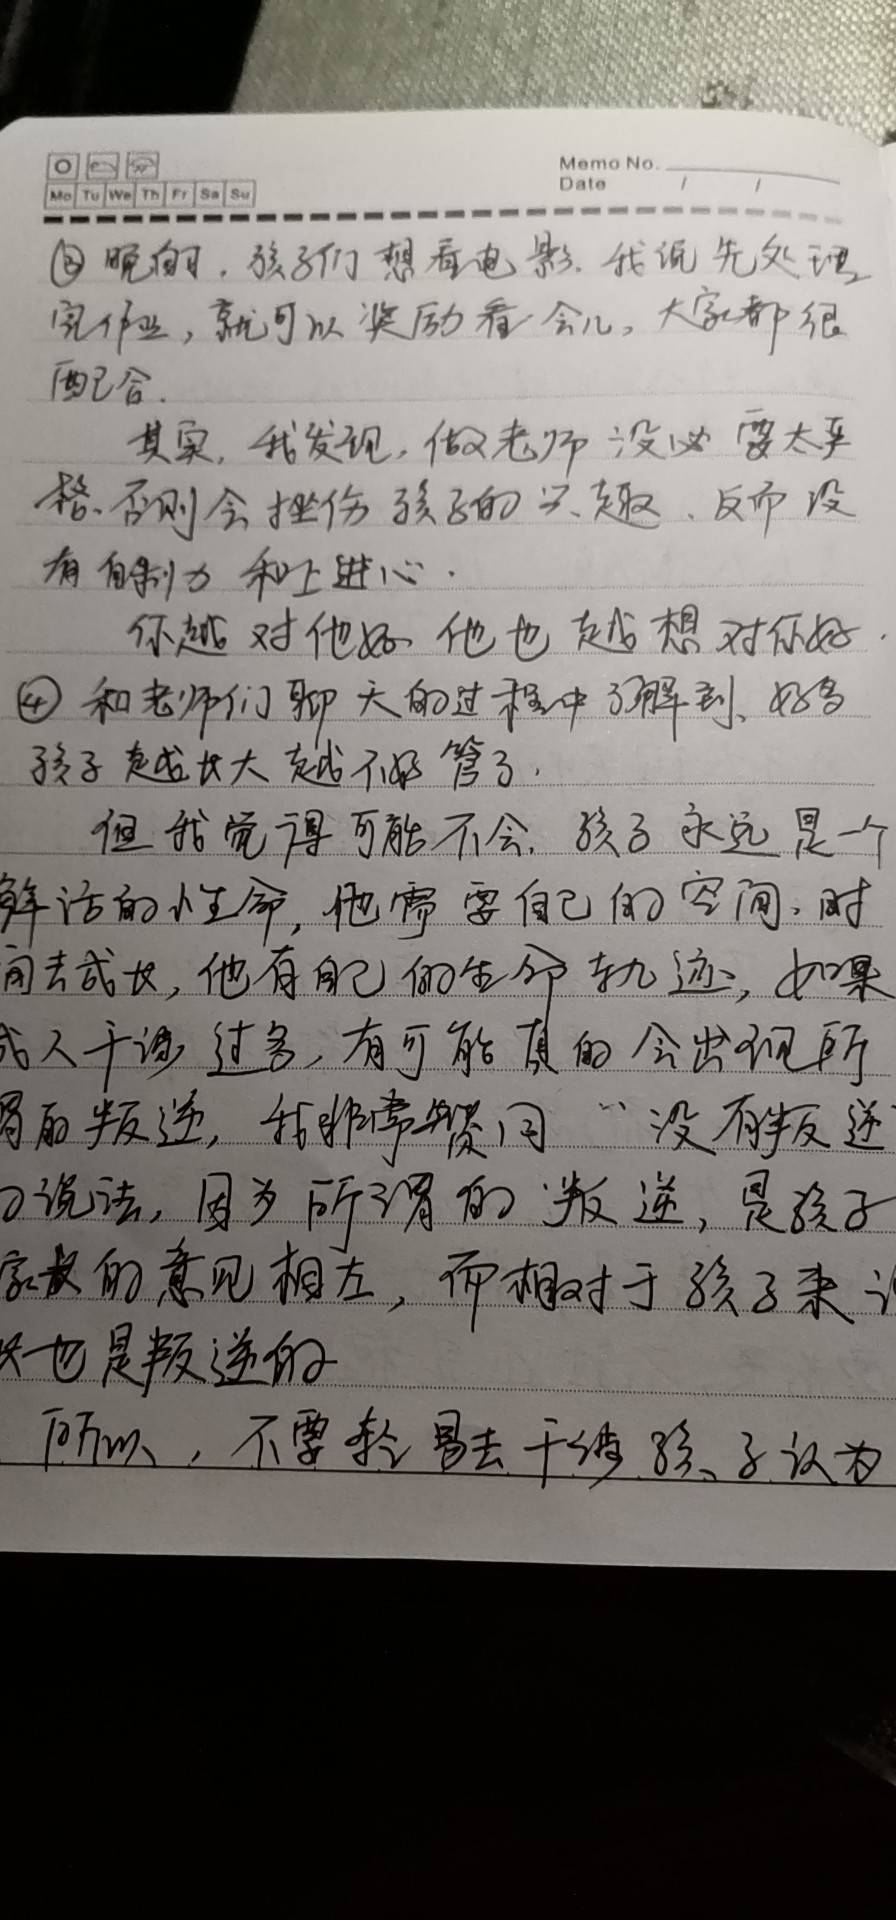 Memo No.
Mo Tu We Th Fr Sa Su
Date / /
③ 晚自习，孩子们想看电影，我说先处理
完作业，就可以奖励看会儿，大家都很
配合．
其实，我发现，做老师没必要太严
格、否则会挫伤孩子的兴趣、反而没
有自制力和上进心．
你越对他好他也越想对你好．
④ 和老师们聊天的过程中了解到、好多
孩子越长大越不好管了．
但我觉得可能不会，孩子永远是一个
鲜活的生命，他需要自己的空间、时
间去成长，他有自己的生命轨迹，如果
成人干涉过多，有可能真的会出现所
谓的叛逆，我非常赞同“没有叛逆
的说法，因为所谓的叛逆，是孩子
家长的意见相左，而相对于孩子来
也是叛逆的
所以，不要轻易去干涉孩子认为